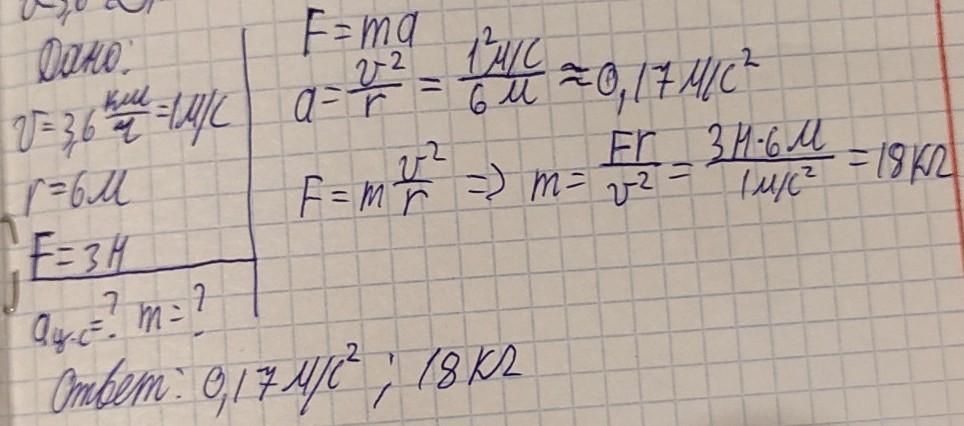 Дано:
v=3,6 км/ч=1м/с
r=6м
F=3Н
aц.с=? m=?
F=ma
a=v²/r=1²м/с/6м≈0,17м/с²
F=m v²/r => m=Fr/v²=3Н·6м/1м/с²=18кг
Ответ: 0,17м/с²; 18кг